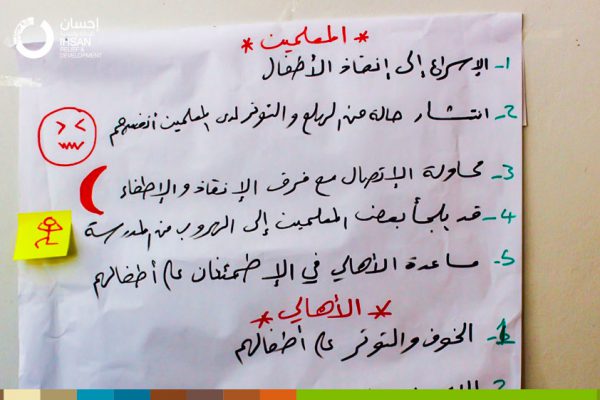 إحسان
للإغاثة والتنمية
IHSAN
RELIEF &
DEVELOPMENT
* المعلمين *
1- الإسراع إلى إنقاذ الأطفال
2- انتشار حالة من الهلع والتوتر لدى المعلمين أنفسهم
3- محاولة الإتصال مع فرق الإنقاذ والإطفاء
4- قد يلجأ بعض المعلمين إلى الهروب من المدرسة
5- مساعدة الأهالي في الإطمئنان على أطفالهم
* الأهالي *
1- الخوف والتوتر على أطفالهم
2-